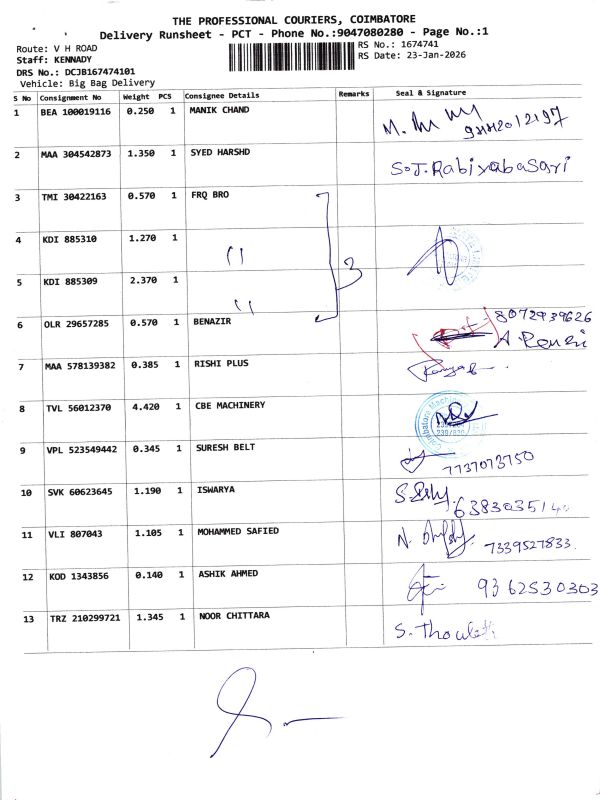 THE PROFESSIONAL COURIERS, COIMBATORE
Delivery Runsheet - PCT - Phone No.:9047080280 - Page No.:1
Route: V H ROAD
Staff: KENNADY
DRS No.: DCJB167474101
Vehicle: Big Bag Delivery
RS No.: 1674741
RS Date: 23-Jan-2026
S No Consignment No Weight PCS Consignee Details Remarks Seal & Signature
1 BEA 100019116 0.250 1 MANIK CHAND
2 MAA 304542873 1.350 1 SYED HARSHD S.T.Rabiyabasari
3 TMI 30422163 0.570 1 FRQ BRO
4 KDI 885310 1.270 1 "
3
5 KDI 885309 2.370 1 "
6 OLR 29657285 0.570 1 BENAZIR 8072939626
7 MAA 578139382 0.385 1 RISHI PLUS
8 TVL 56012370 4.420 1 CBE MACHINERY
9 VPL 523549442 0.345 1 SURESH BELT 7737073750
10 SVK 60623645 1.190 1 ISWARYA
11 VLI 807043 1.105 1 MOHAMMED SAFIED 7339527833
12 KOD 1343856 0.140 1 ASHIK AHMED 9362530303
13 TRZ 210299721 1.345 1 NOOR CHITTARA